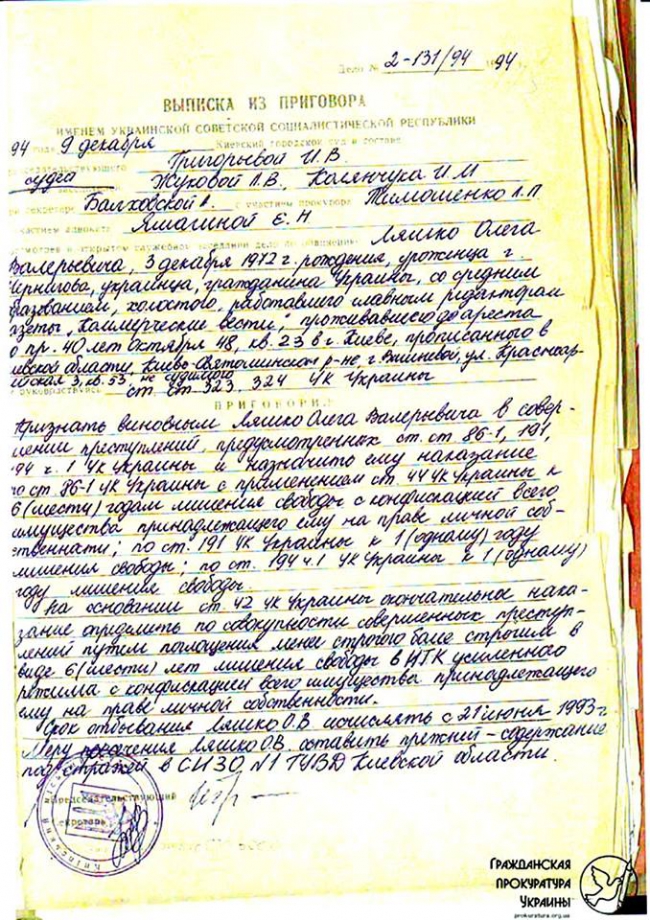 Дело № 2-131/94 1994 г.
ВЫПИСКА ИЗ ПРИГОВОРА
ИМЕНЕМ УКРАИНСКОЙ СОВЕТСКОЙ СОЦИАЛИСТИЧЕСКОЙ РЕСПУБЛИКИ
94 года 9 декабря Киевский городской суд в составе
председательствующего Григорьевой И.В.
судей Жуковой Л.В., Колянчука И.М
секретаре Балховской А. с участием прокурора Тимошенко Л.П
участием адвоката Ямашной Е.Н
в открытом судебном заседании дело по обвинению Ляшко Олега
Валерьевича, 3 декабря 1972 г. рождения, уроженца г.
Чернигова, украинца, гражданина Украины, со средним
образованием, холостого, работавшего главным редактором
газеты „Коммерческие вести", проживавшего до ареста
по пр. 40 лет Октября 48, кв. 23 в г. Киеве, прописанного в
Киевской области, Киево-Святошинском р-не г. Вишневый, ул. Красноар-
мейская 3, кв. 53, не судимого
руководствуясь ст. ст. 323, 324 УК Украины
ПРИГОВОРИЛ
Признать виновным Ляшко Олега Валерьевича в совер-
шении преступлений, предусмотренных ст. ст. 86-1, 191,
194 ч. 1 УК Украины и назначить ему наказание
по ст. 86-1 УК Украины с применением ст. 44 УК Украины к
6 (шести) годам лишения свободы с конфискацией всего
имущества принадлежащего ему на праве личной соб-
ственнати; по ст. 191 УК Украины к 1 (одному) году
лишения свободы; по ст. 194 ч.1 УК Украины к 1 (одному)
году лишения свободы.
На основании ст. 42 УК Украины окончательное нака-
зание определить по совокупности совершенных преступ-
лений путем поглощения менее строгого более строгим в
виде 6 (шести) лет лишения свободы в ИТК усиленного
режима с конфискацией всего имущества принадлежащего
ему на праве личной собственности.
Срок отбывания Ляшко О.В. исчислять с 21 июня 1993 г
Меру Ляшко О.В. оставить прежней - содержание
под стражей в СИЗО №1 ГУВД Киевской области.
Председательствующий
Секретарь
ГРАЖДАНСКАЯ
ПРОКУРАТУРА
УКРАИНЫ
prokuratura.org.ua